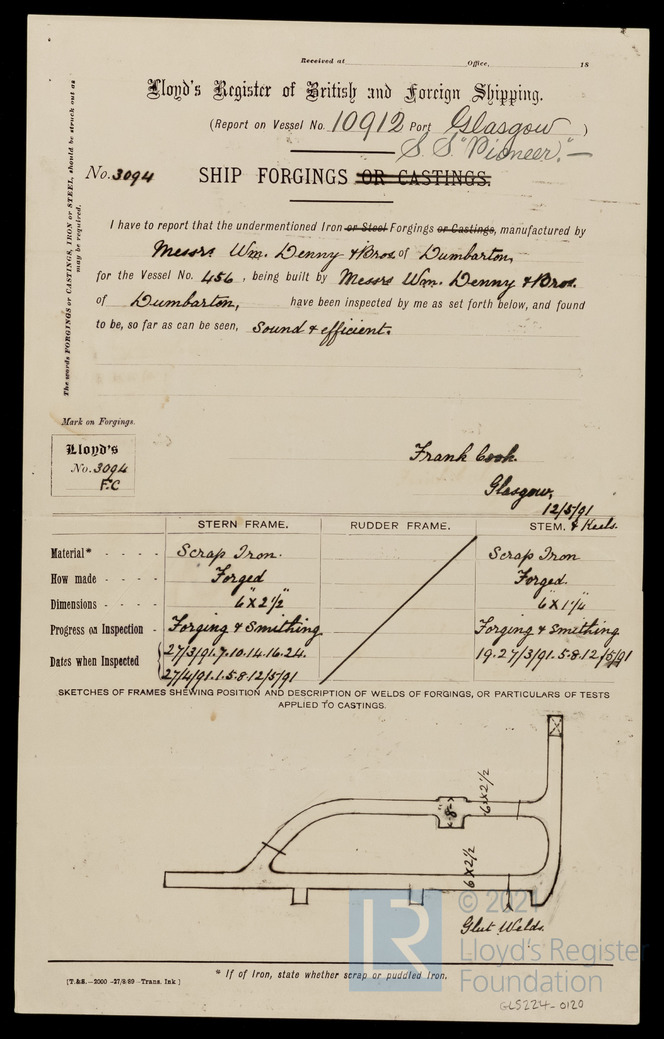 Received at Office, 18
Lloyd's Register of British and Foreign Shipping.
(Report on Vessel No. 10912 Port Glasgow )
S.S. "Pioneer". —
No. 3094 SHIP FORGINGS OR CASTINGS.
The words FORGINGS or CASTINGS, IRON or STEEL, should be struck out as
may be required.
I have to report that the undermentioned Iron or Steel Forgings or Castings, manufactured by
Messrs Wm. Denny & Bros. of Dumbarton,
for the Vessel No. 456, being built by Messrs Wm. Denny & Bros.
of Dumbarton, have been inspected by me as set forth below, and found
to be, so far as can be seen, Sound & efficient.
Mark on Forgings.
Lloyd's
No. 3094
F.C
Frank Cook.
Glasgow,
12/5/91
STERN FRAME. RUDDER FRAME. STEM. & Keels.
Material* - - - - Scrap Iron. Scrap Iron
How made - - - - Forged Forged.
Dimensions - - - - 6" x 2 1/2" 6" x 1 1/4"
Progress on Inspection - Forging & Smithing Forging & Smithing.
Dates when Inspected 27/3/91.7.10.14.16.24. 19.27/3/91.5.8.12/5/91
27/4/91.1.5.8.12/5/91
SKETCHES OF FRAMES SHEWING POSITION AND DESCRIPTION OF WELDS OF FORGINGS, OR PARTICULARS OF TESTS
APPLIED TO CASTINGS.
8"
6 x 2 1/2
6 x 2 1/2
Glut Welds.
© 2021
LR
Lloyd's Register
Foundation
* If of Iron, state whether scrap or puddled Iron.
[T.&S.—2000 —27/8/89—Trans. Ink.]
GLS224-0120